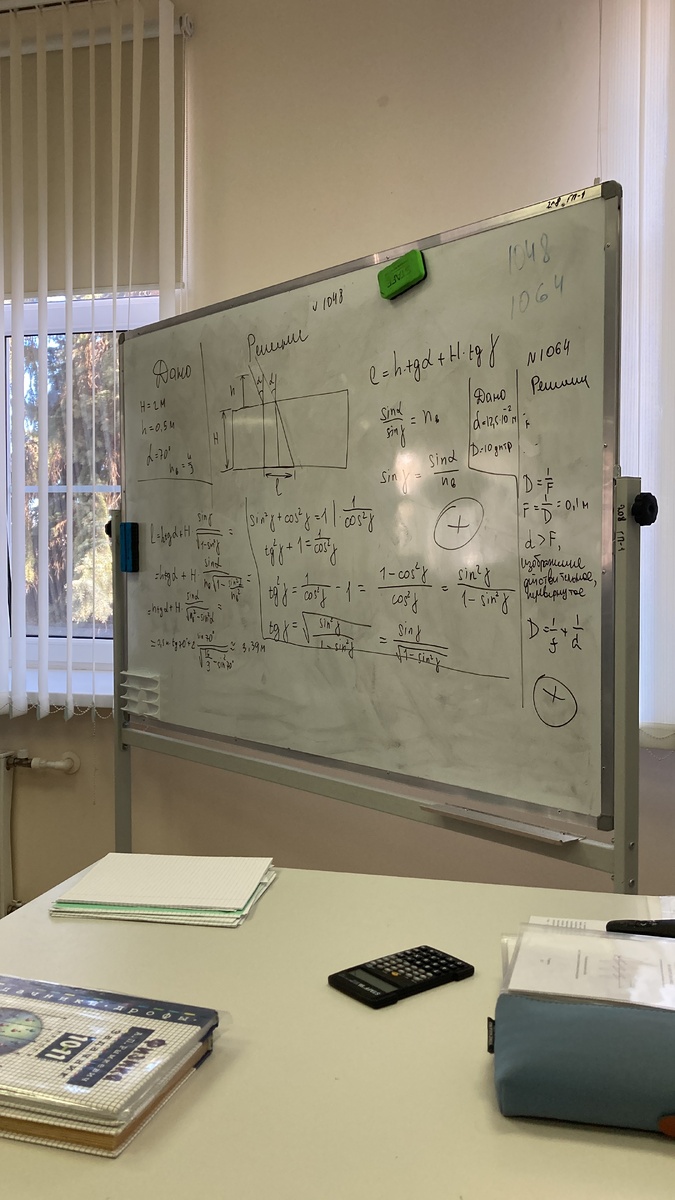 1048
1064
№ 1048
Дано
H = 2 м
h = 0,5 м
α = 70°
Решение
h
α
α
H
l
l = h·tgα + H·tgγ
sinα/sinγ = nв
sinγ = sinα/nв
+
l = h·tgα + H · sinγ/√(1-sin²γ) =
= h·tgα + H · sinα/(nв√(1-sin²α/nв²)) =
= h·tgα + H · sinα/√(nв²-sin²α) =
sin²γ + cos²γ = 1 | · 1/cos²γ
tg²γ + 1 = 1/cos²γ
tg²γ = 1/cos²γ - 1 = (1-cos²γ)/cos²γ = sin²γ/(1-sin²γ)
tgγ = √(sin²γ/(1-sin²γ)) = sinγ/√(1-sin²γ)
№1064
Дано
d = 12,5·10⁻² м
D = 10 дптр
Решение
D = 1/F
F = 1/D = 0,1 м
d > F,
изображение
действительное,
перевернутое
D = 1/f + 1/d
+
Физика
Задачник
10-11
А.П. Рымкевич